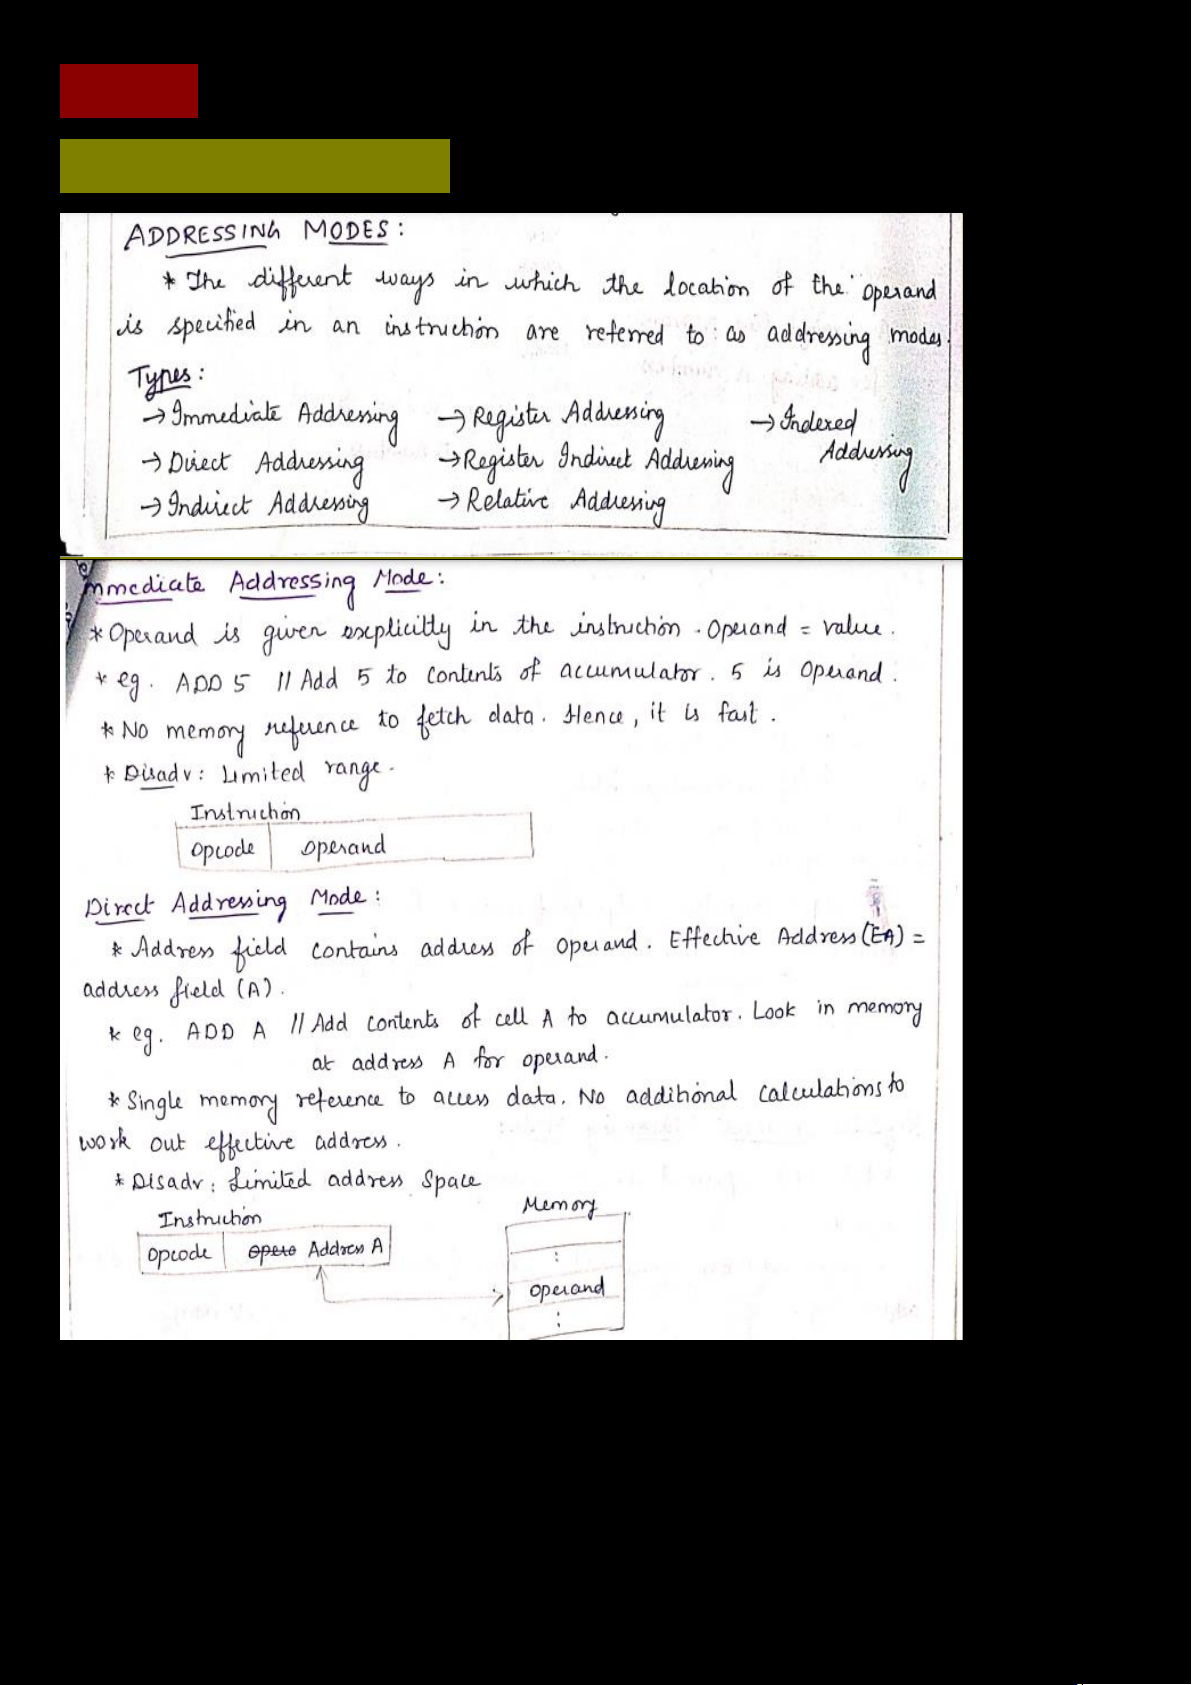 ADDRESSING MODES:
* The different ways in which the location of the operand
is specified in an instruction are referred to as addressing modes.
Types:
→ Immediate Addressing → Register Addressing → Indexed Addressing
→ Direct Addressing → Register Indirect Addressing
→ Indirect Addressing → Relative Addressing
Immediate Addressing Mode:
* Operand is given explicitly in the instruction. Operand = value.
* eg. ADD 5 // Add 5 to contents of accumulator. 5 is operand.
* No memory reference to fetch data. Hence, it is fast.
* Disadv: Limited range.
Instruction
Opcode Operand
Direct Addressing Mode:
* Address field contains address of operand. Effective Address (EA) =
address field (A).
* eg. ADD A // Add contents of cell A to accumulator. Look in memory
at address A for operand.
* Single memory reference to access data. No additional calculations to
work out effective address.
* Disadv: Limited address space
Memory
Instruction
Opcode Address A
:
Operand
: